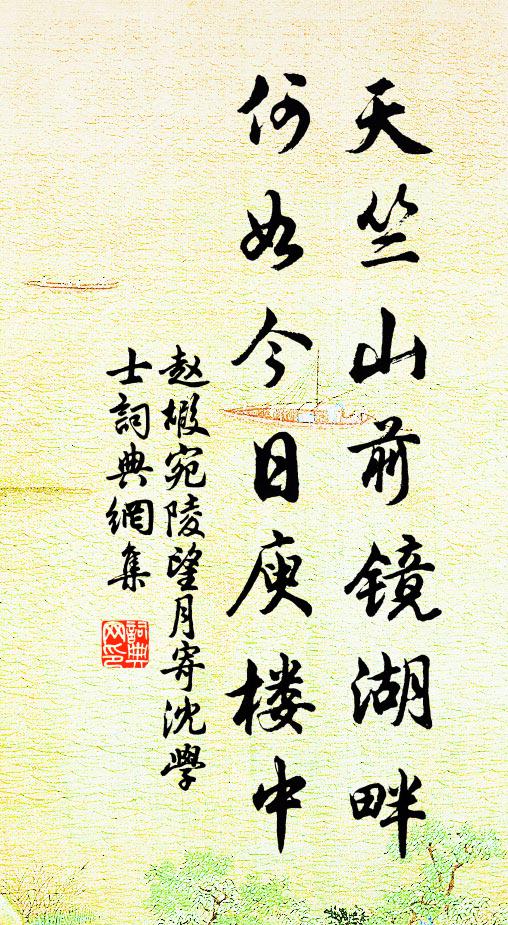 天竺山前镜湖畔
何如今日庾楼中
赵嘏宛陵望月寄沈學
士詞典網集
詞典網印